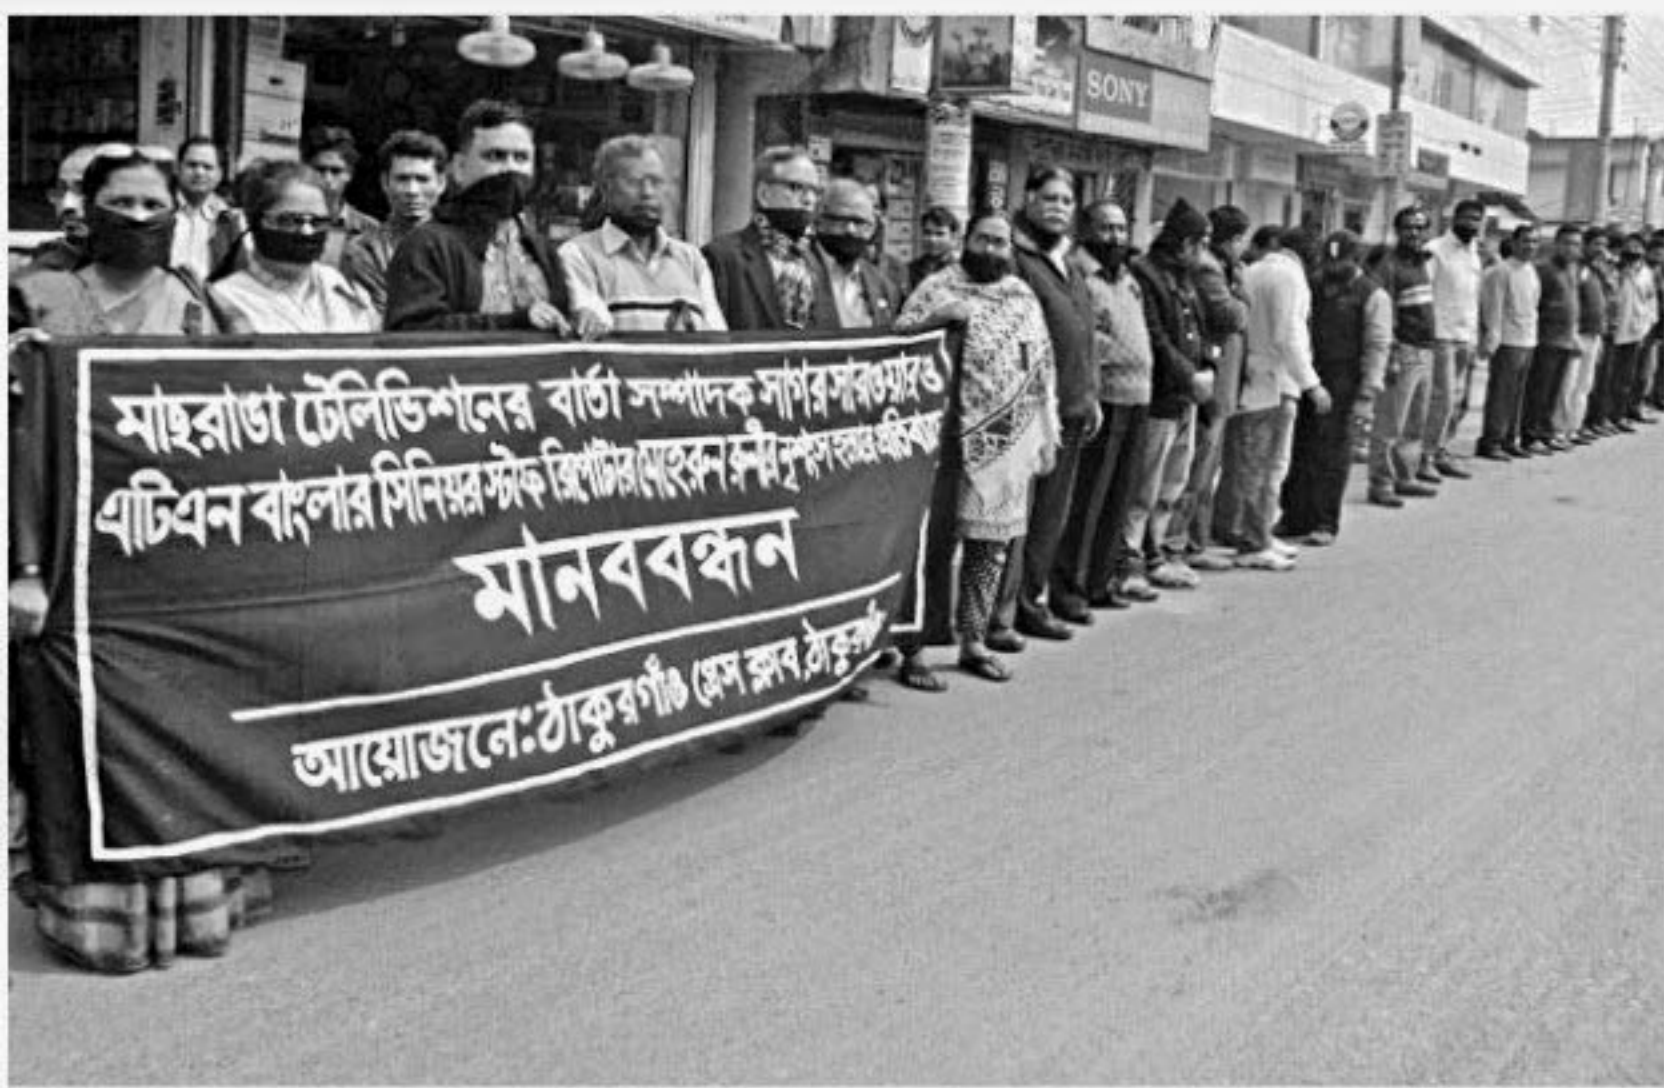 SONY
মাছরাঙা টেলিভিশনের বার্তা সম্পাদক সাগর সারওয়ার ও
এটিএন বাংলার সিনিয়র স্টাফ রিপোর্টার মেহেরুন রুনীর নৃশংস হত্যার প্রতিবাদে
মানববন্ধন
আয়োজনে: ঠাকুরগাঁও প্রেস ক্লাব, ঠাকুরগাঁও